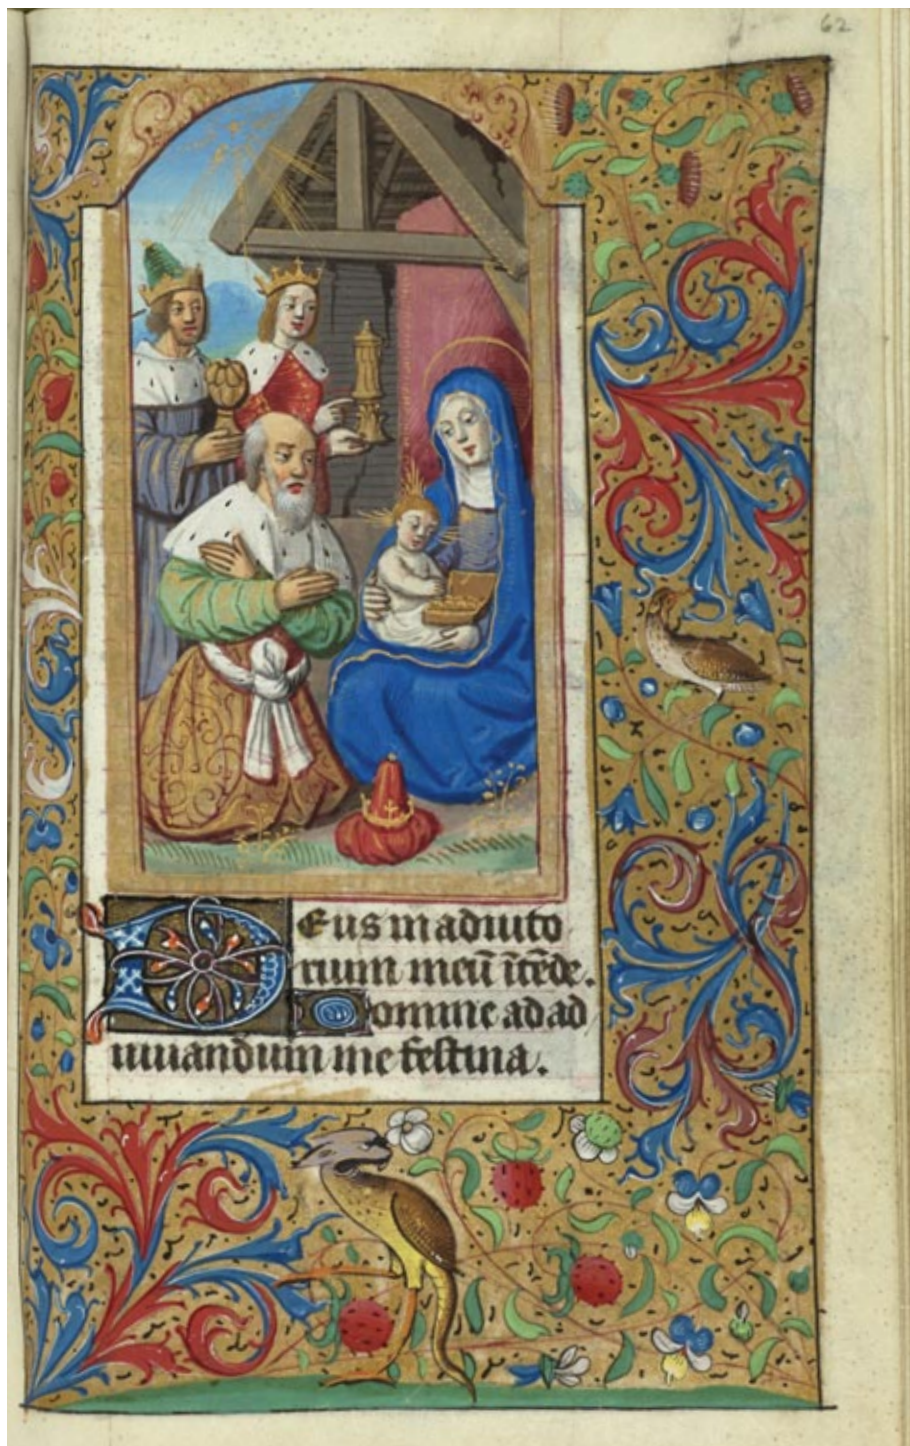 62
Deus in adiuto
rium meū ītēde.
Domine ad ad
iuuandum me festina.